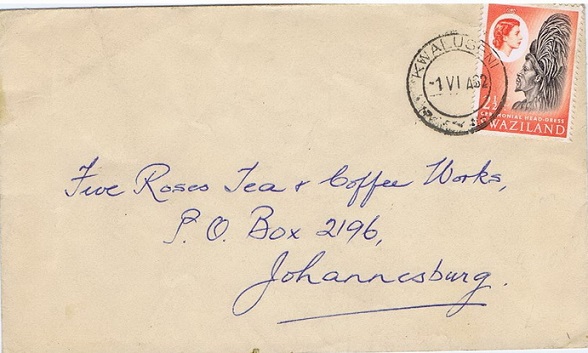 KWALUSENI
-1 VI 62
2½
CEREMONIAL HEAD-DRESS
SWAZILAND
Five Roses Tea & Coffee Works,
P.O. Box 2196,
Johannesburg.